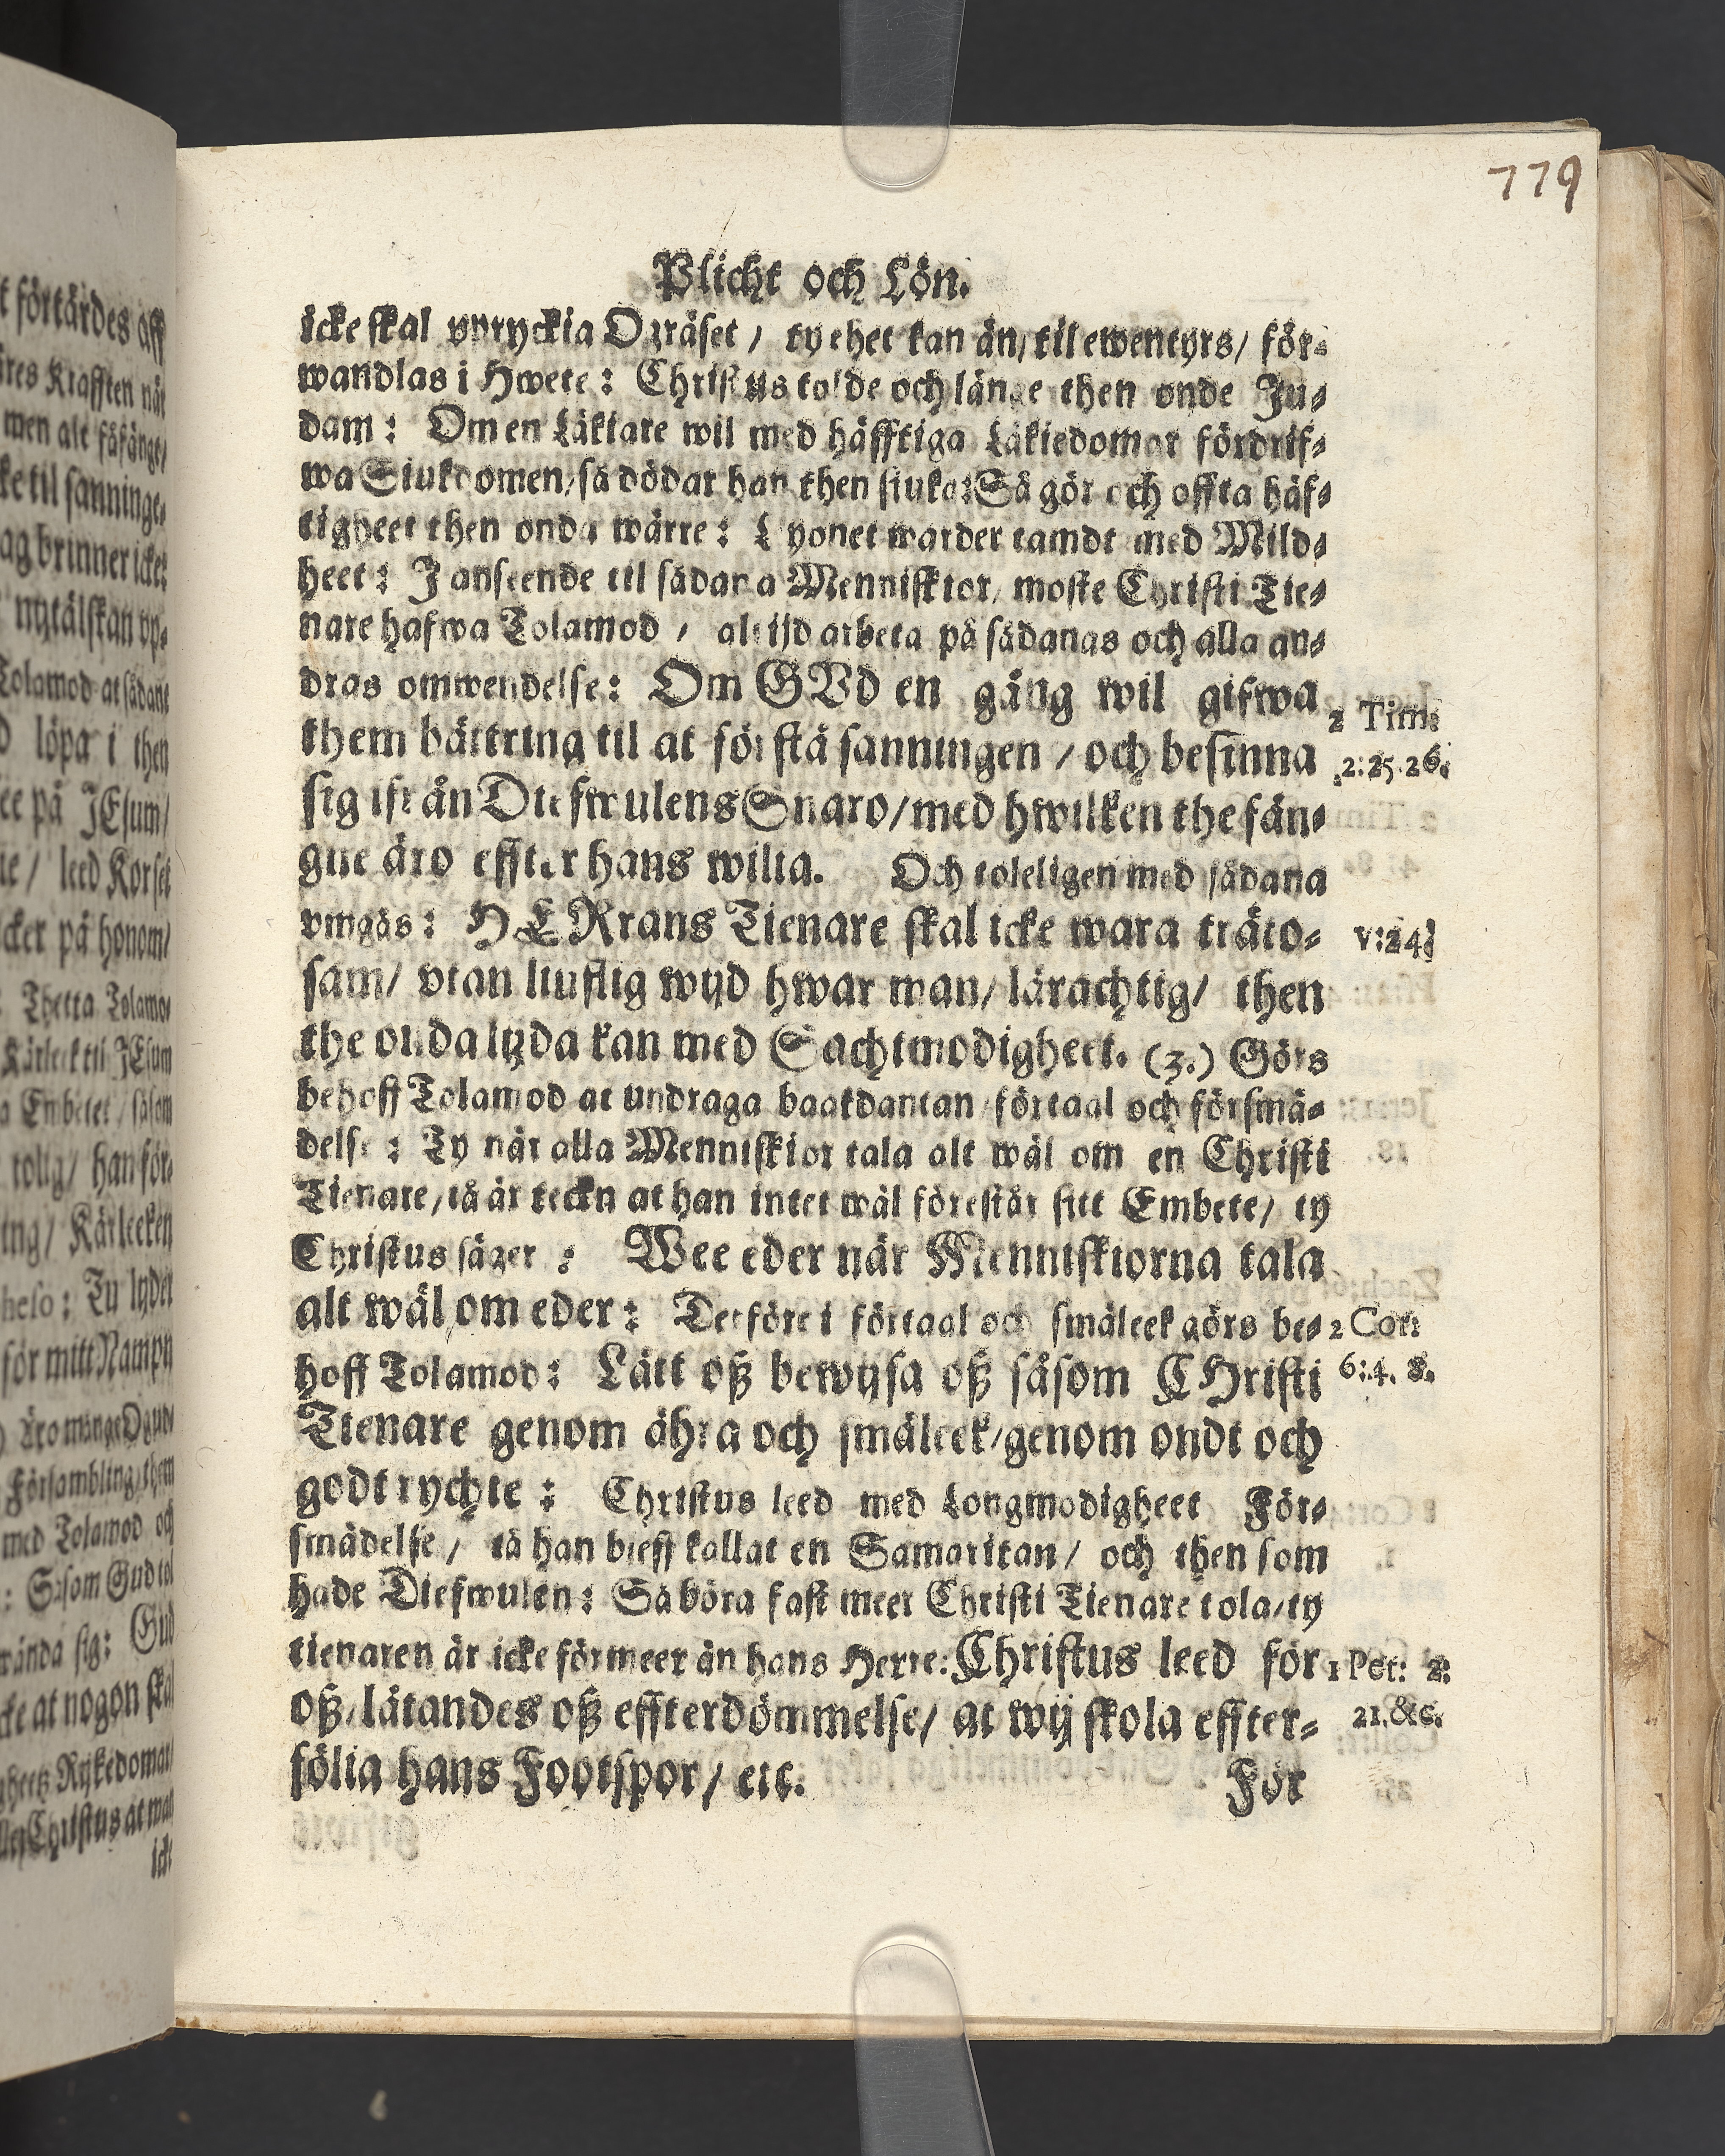 779
Plicht och Lön.
icke skal vpryckia Ogräset / ty thet kan än / til ewentyrs / för⸗
wandlas i Hwete: Christus tolde och länge then onde Ju⸗
dam: Om en Läkiare wil med häfftiga Läkiedomar fördrif⸗
wa Siukdomen / så dödar han then siuka: Så gör och offta häf⸗
tigheet then onda wärre: Lyonet warder tamdt med Mild⸗
heet: J anseende til sådana Menniskior / moste Christi Tie⸗
nare hafwa Tolamod / altijd arbeta på sådanas och alla an⸗
dras omwendelse: Om GVd en gång wil gifwa
2 Tim:
them bättring til at förstå sanningen / och besinna
2:25.26.
sig ifrån Diefwulens Snaro / med hwilken the fån⸗
gne äro effter hans wilia. Och toleligen med sådana
vmgås: HERrans Tienare skal icke wara träto⸗
v:24
sam / vtan liuflig wijd hwar man / lärachtig / then
the onda lyda kan med Sachtmodigheet. (3.) Görs
behoff Tolamod at undraga baakdantan förtaal och försmä⸗
delse: Ty när alla Menniskior tala alt wäl om en Christi
Tienare / tå är teckn at han intet wäl förestår sitt Embete / ty
Christus säger: Wee eder när Menniskiorna tala
alt wäl om eder: Derföre i förtaal och smäleek görs be⸗
2 Cor:
hoff Tolamod: Lått oß bewijsa oß såsom CHristi
6:4. 8.
Tienare genom ähra och smäleek / genom ondt och
godt rychte: Christus leed med Longmodigheet För⸗
smädelse / tå han bleff kallat en Samaritan / och then som
hade Diefwulen: Så böra fast meer Christi Tienare tola / ty
tienaren är icke förmeer än hans Herre: Christus leed för
1 Pet: 2:
oß / låtandes oß effterdömmelse / at wij skola effter⸗
21.&c.
fölia hans Footspor / etc.
För